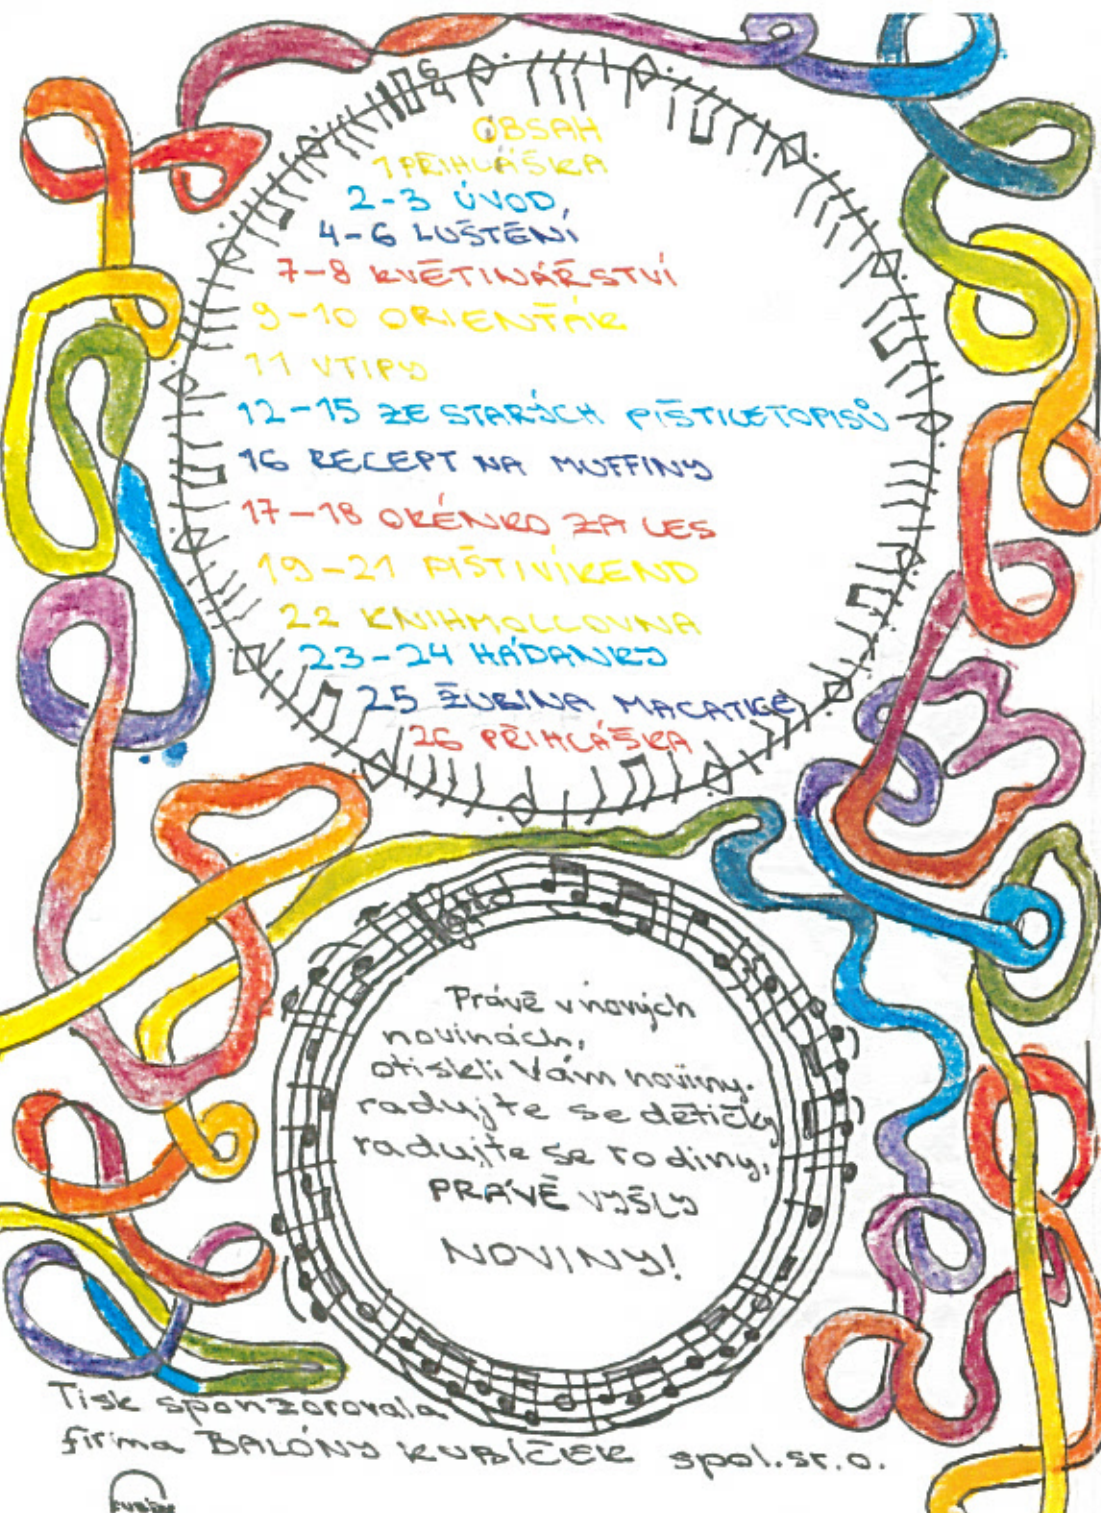 OBSAH
1 PŘIHLÁŠKA
2-3 ÚVOD
4-6 LUŠTĚNÍ
7-8 KVĚTINÁŘSTVÍ
9-10 ORIENŤÁK
11 VTIPY
12-15 ZE STARÝCH PIŠTILETOPISŮ
16 RECEPT NA MUFFINY
17-18 OKÉNKO ZA LES
19-21 PIŠTIVÍKEND
22 KNIHMOLLOVNA
23-24 HÁDANKY
25 ŽUBINA MACATICE
26 PŘIHLÁŠKA
Právě v nových
novinách,
otiskli Vám noviny.
radujte se dětičky
radujte se rodiny,
PRÁVĚ VYŠLY
NOVINY!
Tisk sponzorovala
firma BALÓNY KUBÍČEK spol.sr.o.